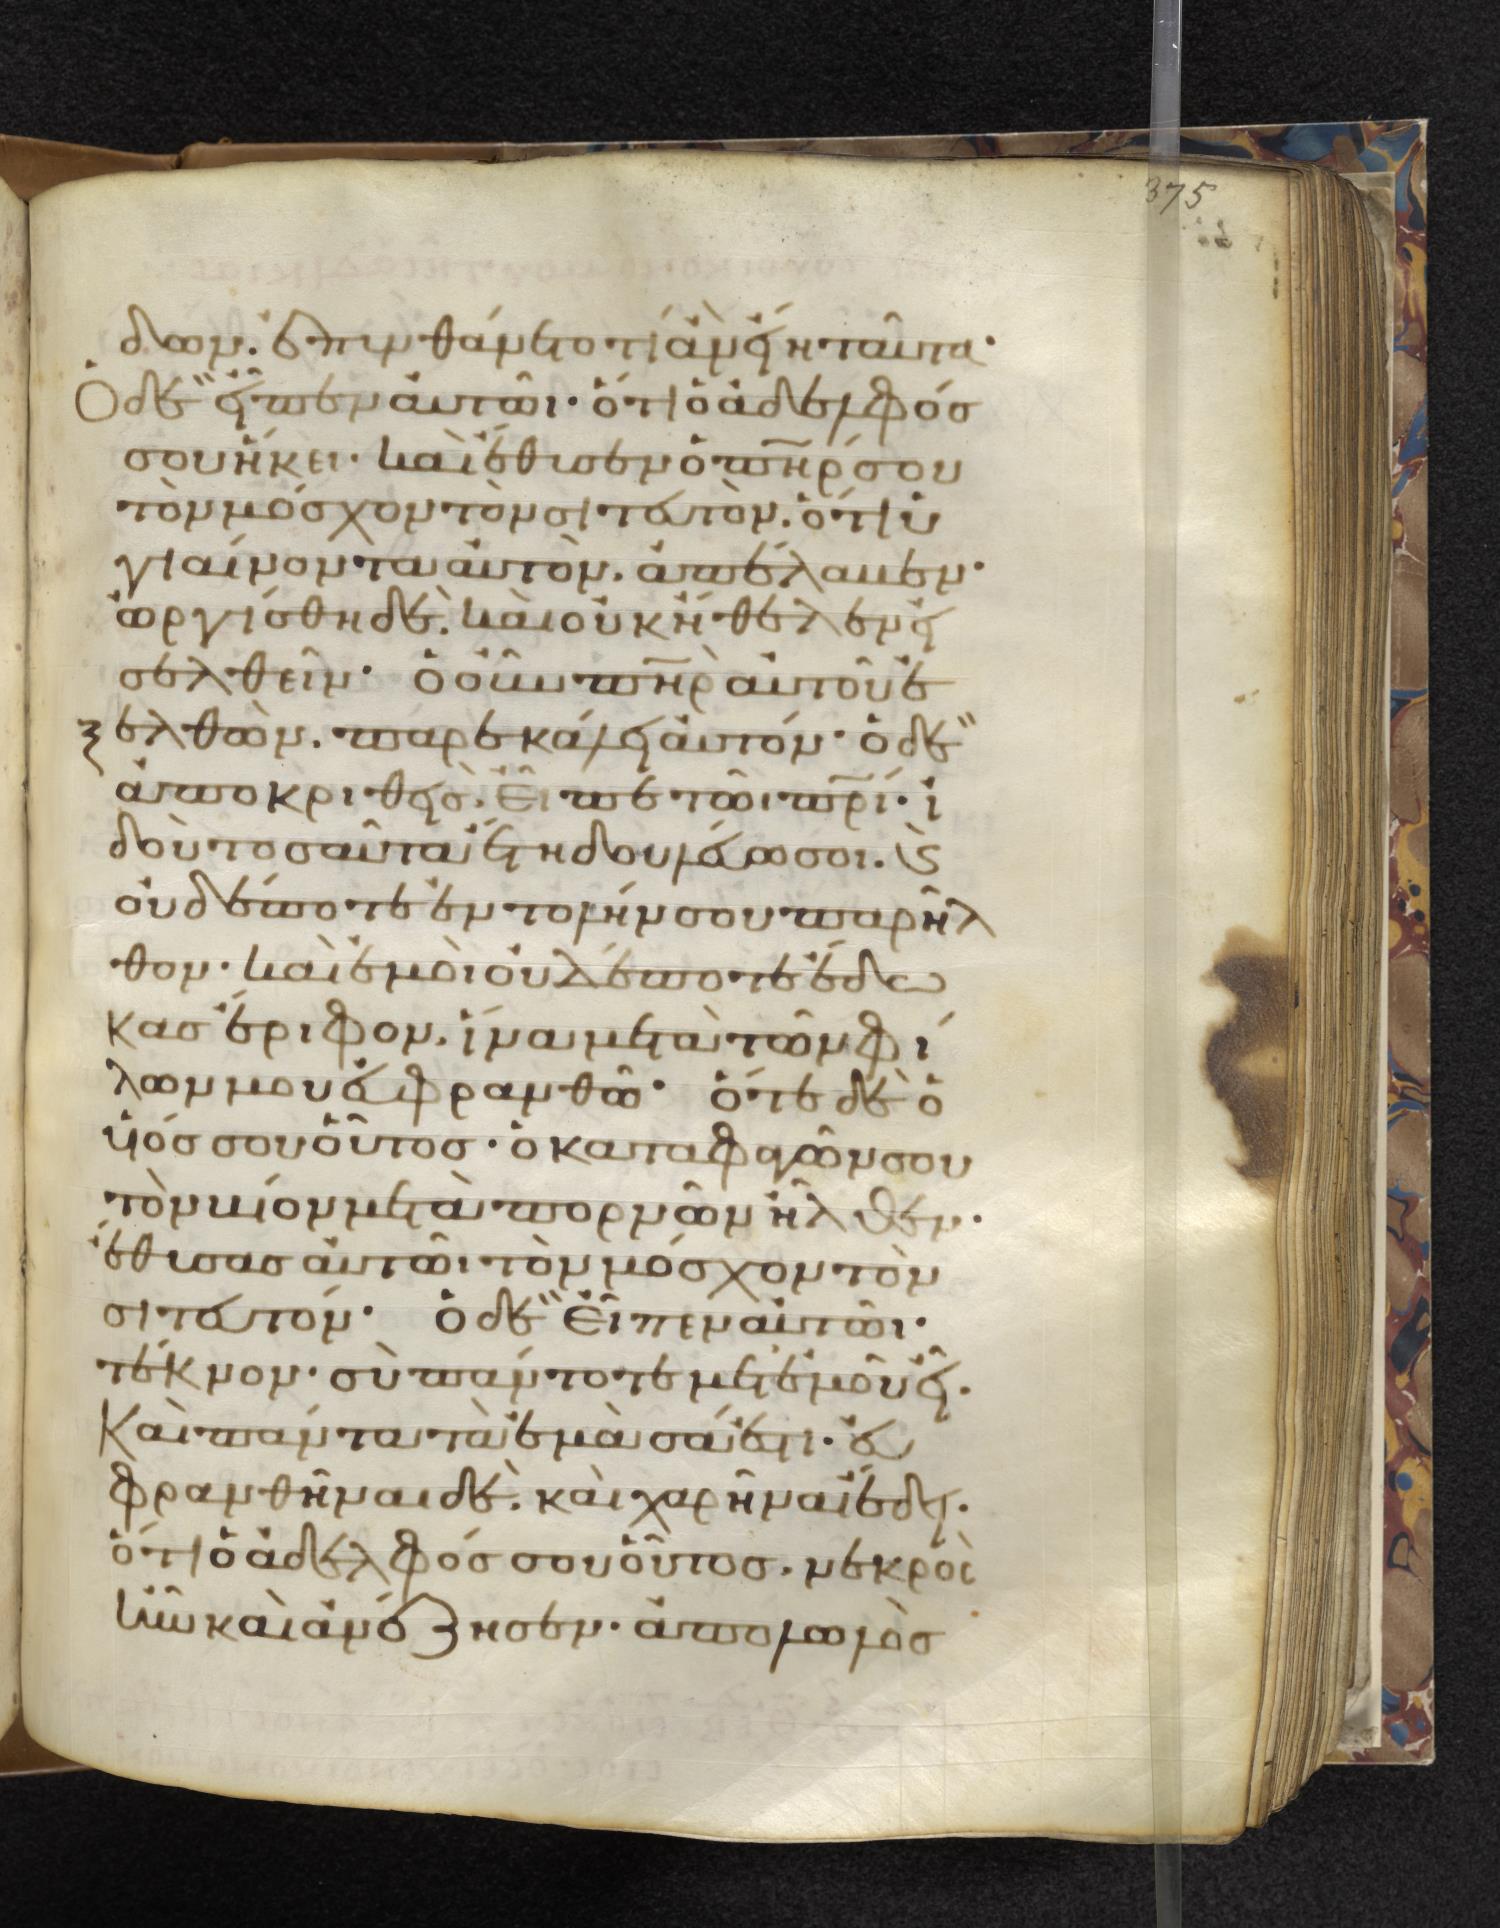 375
δων. ἐπυνθάνετο τί ἂν εἴη ταῦτα·
Ὁ δὲ εἶπεν αὐτῶι· ὅτι ὁ ἀδελφόσ
σου ἥκει· καὶ ἔθυσεν ὁ πη̅ρ σου
τὸν μόσχον τὸν σιτευτὸν. ὅτι ὑ
γιαίνοντα αὐτὸν. ἀπέλαβεν·
ὠργίσθη δὲ. καὶ οὐκ ἤθελεν εἰ
σελθεῖν· ὁ οὖν πη̅ρ αὐτοῦ ἐ
ξελθὼν. παρεκάλει αὐτόν· ὁ δὲ
ἀποκριθεὶσ. εἶπε τῶι πρ̅ί· ἰ
δοὺ τοσαῦτα ἔτη δουλεύω σοι. ϗ
οὐδέποτε ἐντολήν σου παρῆλ
θον· καὶ ἐμοὶ οὐδέποτε ἔδω
κασ ἔριφον. ἵνα μετὰ τῶν φί
λων μου εὐφρανθῶ· ὅτε δὲ ὁ
υἱόσ σου οὗτοσ· ὁ καταφαγῶν σου
τὸν βίον μετὰ πορνῶν ἦλθεν·
ἔθυσασ αὐτῶι τὸν μόσχον τὸν
σιτευτόν· ὁ δὲ εἶπεν αὐτῶι·
τέκνον· σὺ πάντοτε μετ ἐμοῦ εἶ·
Καὶ πάντα τὰ ἐμὰ σά ἐστι· εὐ
φρανθῆναι δὲ. καὶ χαρῆναι ἔδει·
ὅτι ὁ ἀδελφόσ σου οὗτοσ. νεκρὸσ
ἦν καὶ ἀνέζησεν· ἀπολωλὸσ